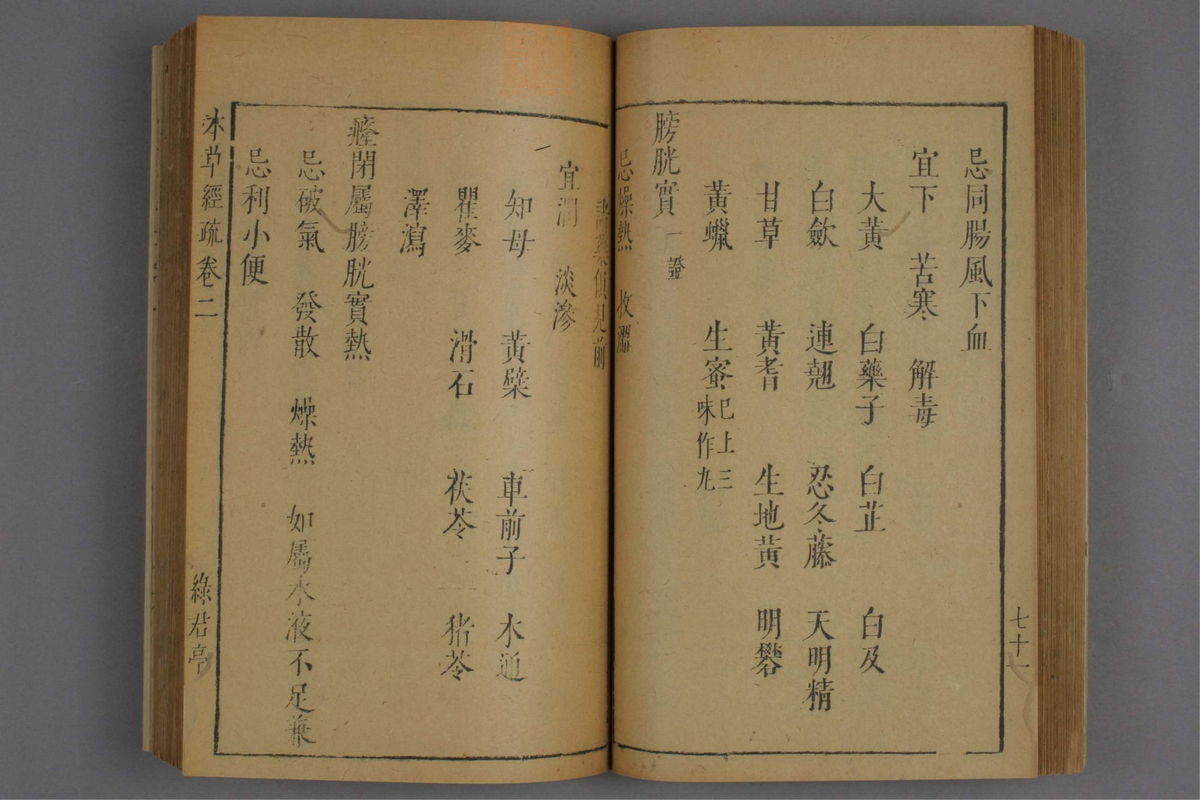 忌同腸風下血
宜下　苦寒　解毒
大黃　白藥子　白芷　白及
白歛　連翹　忍冬藤　天明精
甘草　黃耆　生地黃　明礬
黃蠟　生蜜巳上三味作丸
膀胱實一證
忌燥熱　收濇
諸藥俱見前
宜潤　淡滲
知母　黃蘗　車前子　木通
瞿麥　滑石　茯苓　猪苓
澤瀉
癃閉屬膀胱實熱
忌破氣　發散　燥熱　如屬水液不足兼
忌利小便
本草經疏卷二
綠君亭
七十一